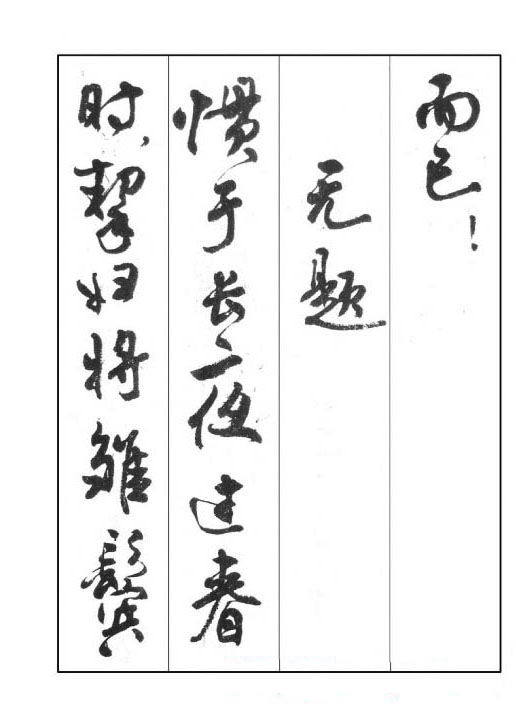 而已！
无题
惯于长夜过春
时，挈妇将雏鬓